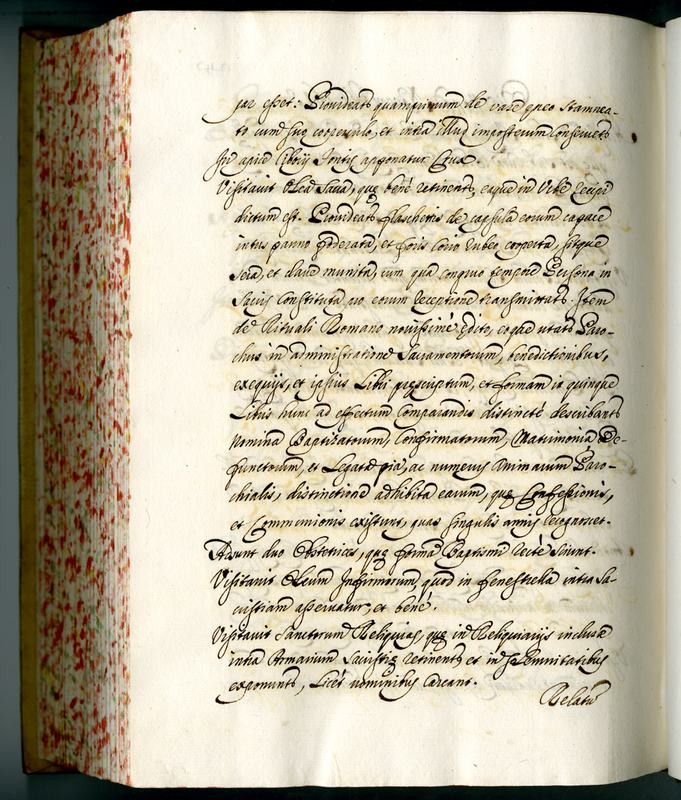 par esset: Provideat quamprimum de vase æneo stamnea-
to cum suo cooperculo, et intra illud impostevum conservet
In apice Ciborij Fontis apponatur Crux.
Visitavit Olea Sacra, quę bené retinent, eaque in Urbe recipi
dictum est. Provideat flaschettis de capsula eorum capace
intus panno foderata, et foris corio rubeo cooperta, sitque
sera, et clave munita, cum qua congruo tempore Persona in
Sacris constituta pro eorum receptione transmittat. Item
de Rituali Romano novissimé edito, eoque utat Paro-
chus in administratione Sacramentorum, benedictionibus,
exequijs, et ipsius Libri pręscriptum, et formam in quinque
Libris hunc ad effectum comparandis distincté describant
nomina Baptizatorum, Confirmatorum, Matrimonia De-
functorum, et Legata pia, ac numerus Animarum Paro-
chialis, distinctione adhibita earum, quę Confessionis,
et Communionis existunt, quas singulis annis recognoscet.
Adsunt duo Obstetrices, quę formã Baptismi recté sciunt.
Visitavit Oleum Infirmorum, quod in fenestrella intra Sa-
cristiam asservatur, et bené.
Visitavit Sanctorum Reliquias, quę in Reliquiarijs inclusę
intra Armarium Sacristię retinent, et in solemnitatibus
exponunt, licet nominibus careant.
Relatũ